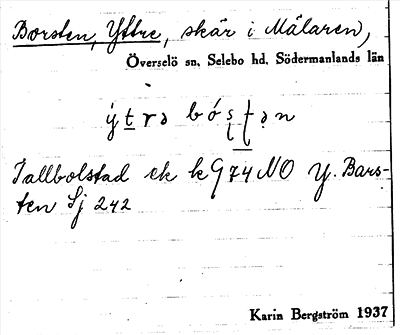 Borsten, Yttre, skär i Mälaren,
Överselö sn, Selebo hd, Södermanlands län
Tallbolstad ek k G74 NO Y. Bars-
ten Sj 242
Karin Bergström 1937